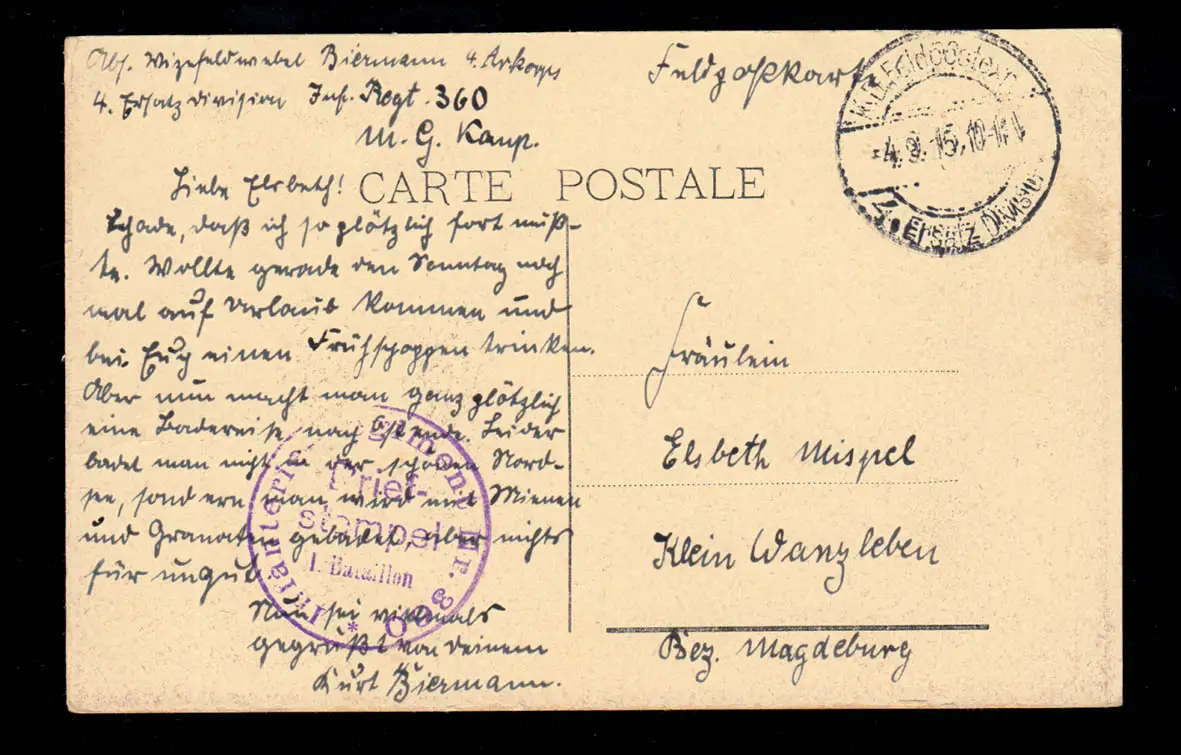 Abs. Vizefeldwebel Biermann 4. Arkorps
4. Ersatzdivision Inf. Regt. 360
M. G. Komp.
Feldpostkarte
K.D. Feldpostexp.
4.9.15. 10-11
4. Ersatz Division
CARTE POSTALE
Liebe Elsbeth!
Schade, daß ich so plötzlich fort muß-
te. Wollte gerade den Sonntag noch
mal auf Urlaub kommen und
bei Euch einen Frühschoppen trinken.
Aber nun macht man ganz plötzlich
eine Badereise nach Ostende. Leider
badet man nicht in der schönen Nord-
see, sondern man wird mit Minen
und Granaten gebadet, aber nichts
für ungut.
Nun sei vielmals
gegrüßt von Deinem
Kurt Biermann.
Infanterie Regiment Nr. 360
Brief-
stempel
I. Bataillon
Fräulein
Elsbeth Mispel
Klein Wanzleben
Bez. Magdeburg